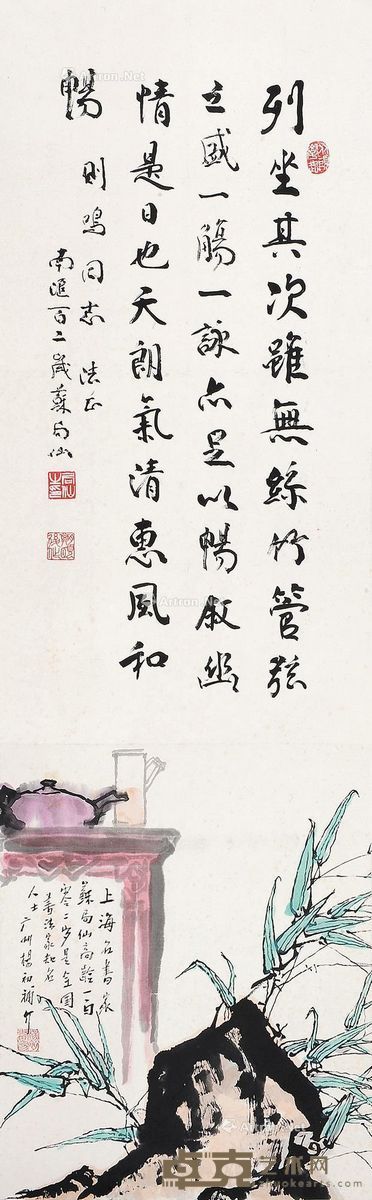 列坐其次雖無絲竹管弦
之盛一觴一詠亦足以暢敘幽
情是日也天朗氣清惠風和
暢
則鳴同志 法正
南滙百二歲蘇局仙
上海名書家
蘇局仙高齡一百
零二岁是全國
書法家知名
人士广州楊初補竹
Artron.Net
卓克艺术网
www.zhuokearts.com